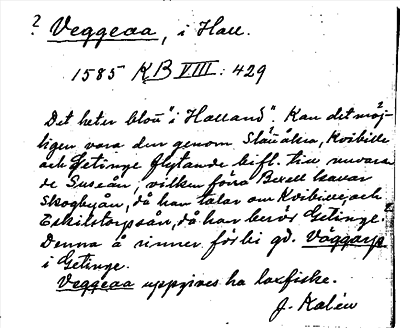 ? Veggeaa, i Hall.
1585 KB VIII: 429
Det heter blott "i Halland". Kan det möj-
ligen vara den genom Slättåkra, Kvibille
och Getinge flytande bifl. till nuvaran-
de Suseån, vilken förra Bexell kallar
Skogbyån, då han talar om Kvibille, och
Eskilstorpsån, då han berör Getinge?
Denna å rinner förbi gd. Väggarp
i Getinge.
Veggeaa uppgives ha laxfiske.
J. Kalén